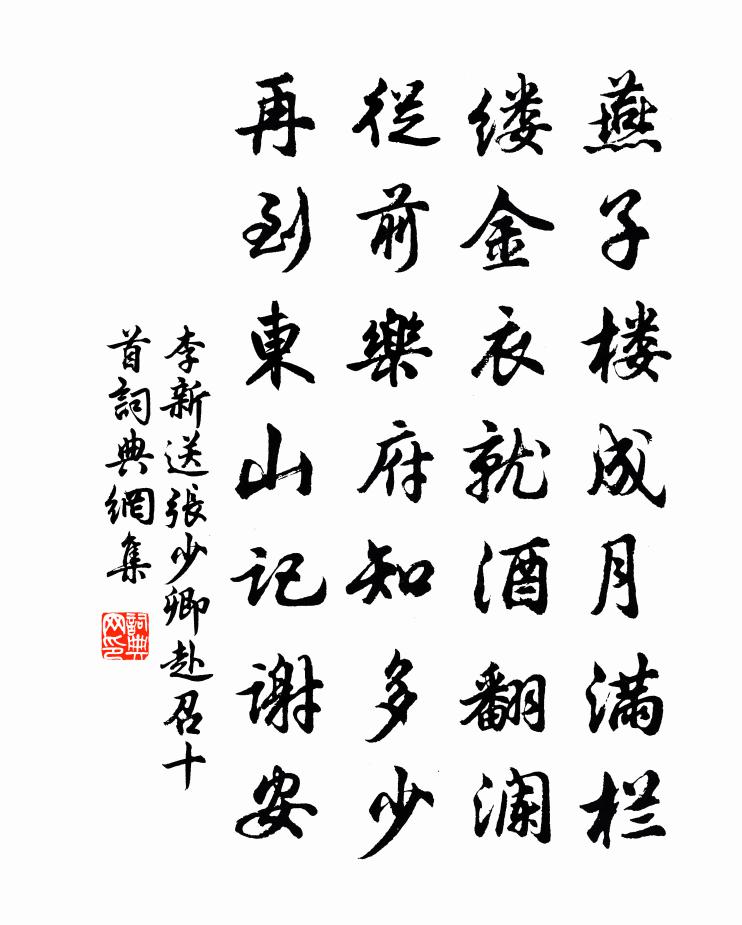 燕子楼成月满栏
缕金衣就酒翻澜
從前樂府知多少
再到東山記谢安
李新送張少卿赴召十
首詞典網集
詞典
网印